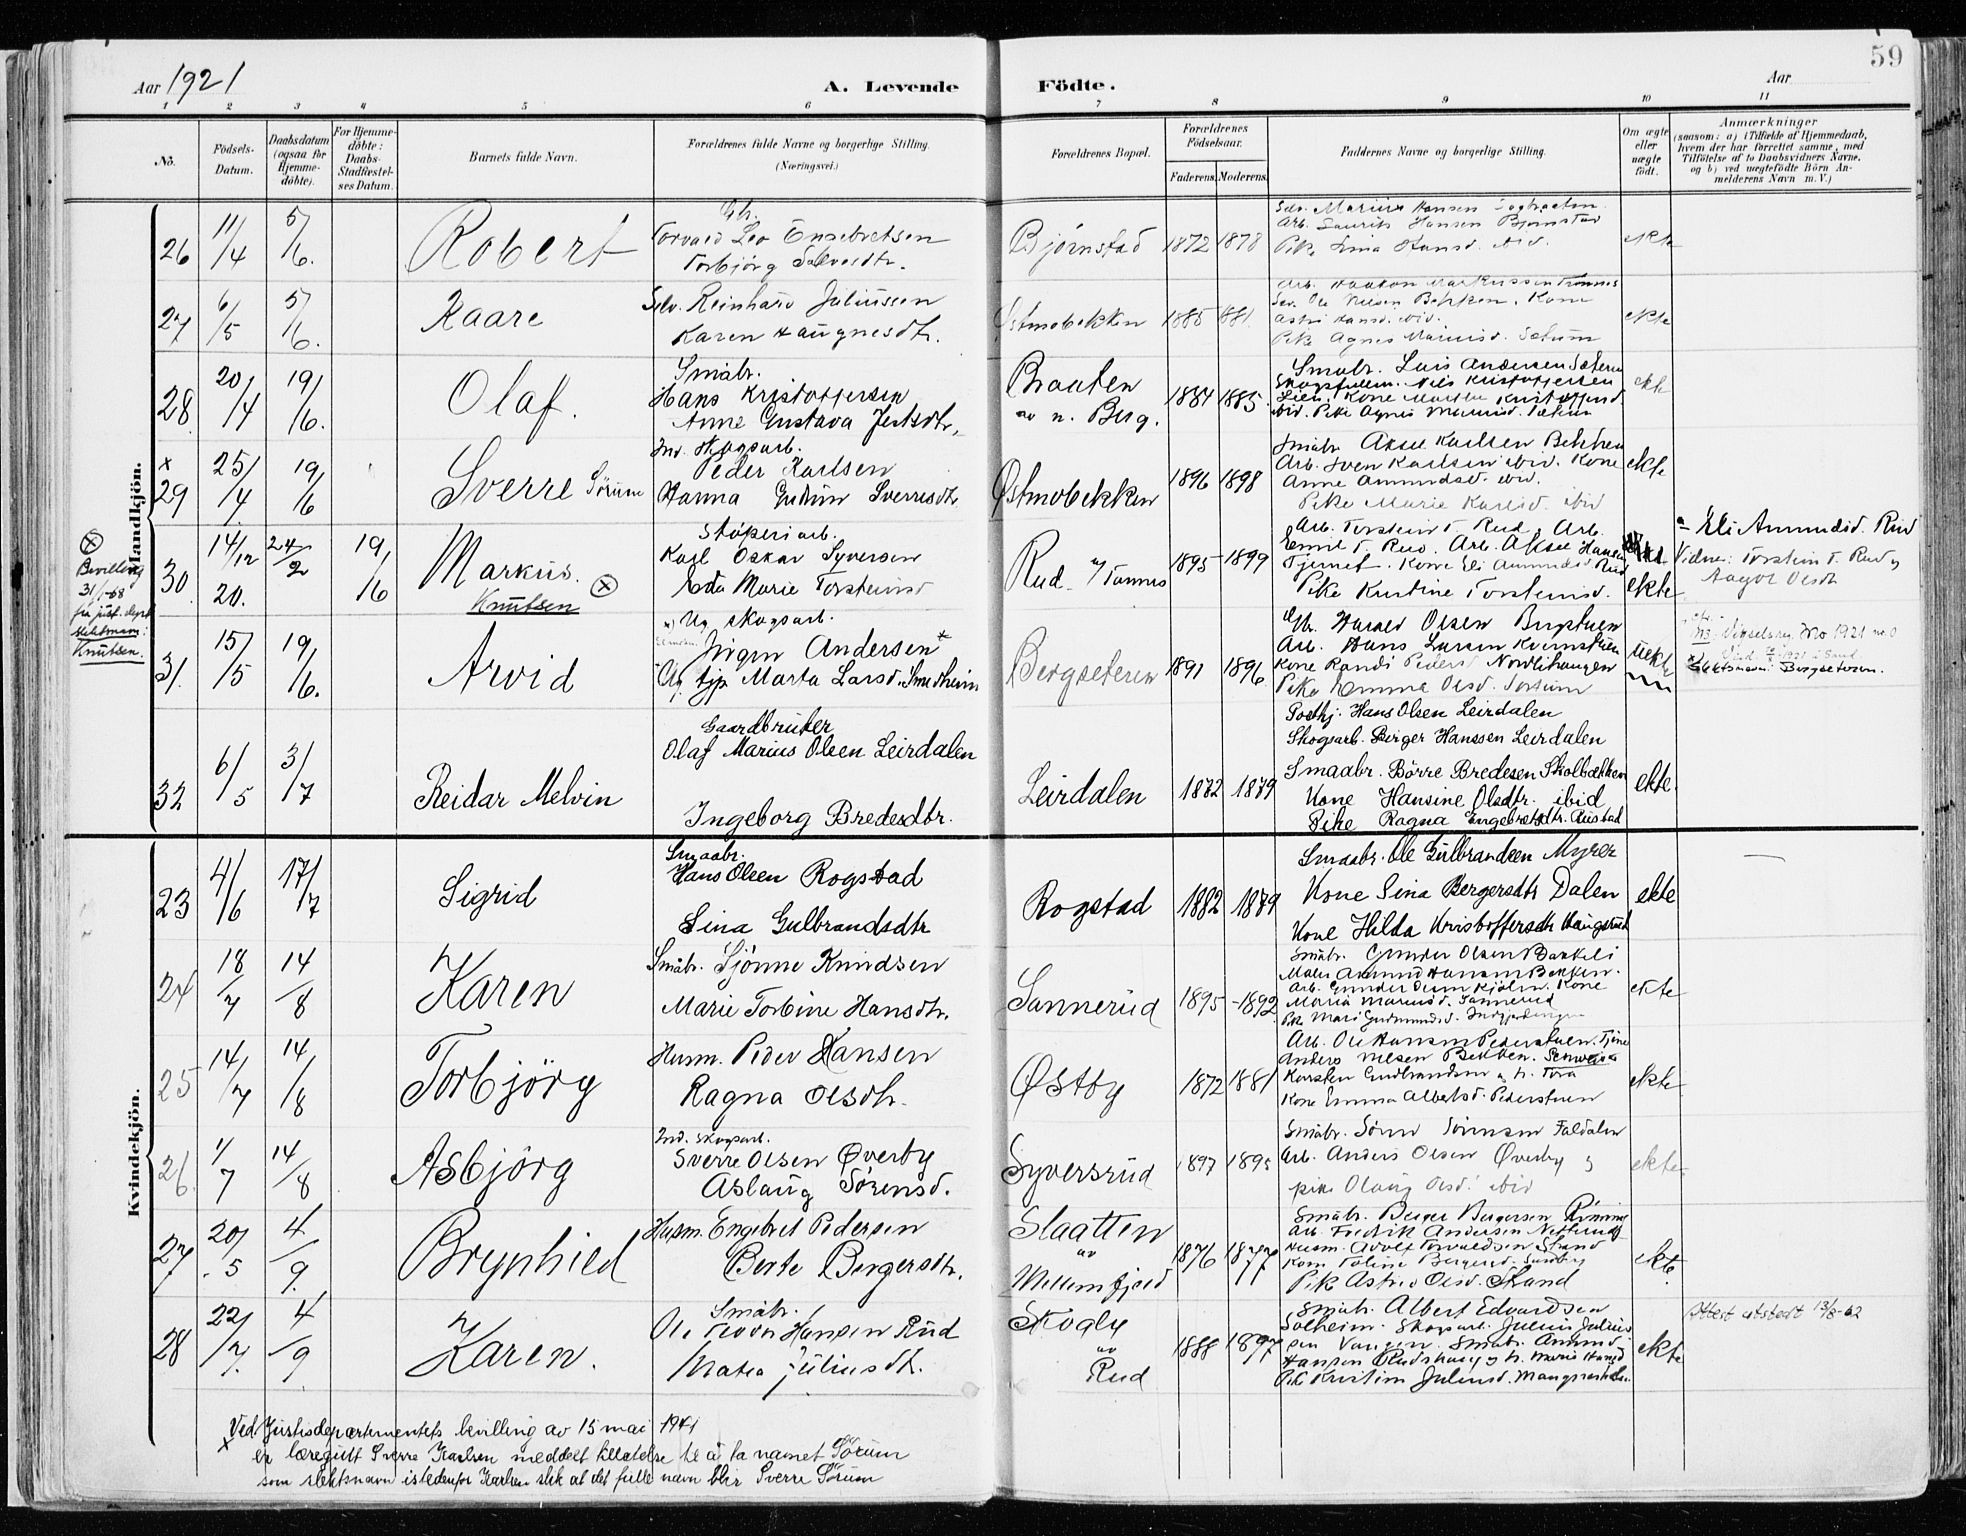 59
Aar 1921
A. Levende Födte.
Aar
1 2 3 4 5 6 7 8 9 10 11
No.
Födsels-
Datum.
Daabsdatum
(ogsaa for
Hjemme-
döbte).
For Hjemme-
döbte:
Daabs-
Stadfæstel-
ses Datum.
Barnets fulde Navn.
Forældrenes fulde Navne og borgerlige Stilling.
(Næringsvei.)
Forældrenes Bopæl.
Forældrenes
Födselsaar.
Faderens. Moderens.
Faddernes Navne og borgerlige Stilling.
Om ægte
eller
uægte
födt.
Anmærkninger
(saasom: a) i Tilfælde af Hjemmedaab,
hvem der har forrettet samme, med
Tilföielse af to Daabsvidners Navne,
og b) ved uægtefödte Börn An-
melderens Navn m. V.)
Mandkjön.
26 11/4 5/6. Robert
Torvald Leo Engebretsen
Torbjörg
Bjørnstad 1872 1878
Marius Hansen
Arb. Laurits Hansen Bjørnstad
Pike Lina Hansd. ibid.
ekte
27 6/5 5/6. Kaare
Selv. Reinhard Juliussen
Karen Haugnesdtr.
Østmobekken 1885 1881
Arb. Haakon Markussen
Ole Nilsen Bekken. Kone
ibid.
Pike Agnes Mariusd. Sætum
ekte
28 20/4 19/6. Olaf.
Småbr.
Hans Kristoffersen
Anne Gustava
Braaten
av n. Berg.
1884 1885
Småbr. Lars Andersen Sæteren
Nils Kristoffersen
Lien. Kone Marthe Kristoffersd
ibid. Pike Agnes Mariusd. Sætum
ekte
x
29 25/4 19/6 Sverre Sørum
Ind. Skogsarb.
Peder Karlsen
Hanna Gudrun Sverresdtr.
Østmobekken 1896 1898
Småbr Aksel Karlsen Bekken
Arb. Sven Karlsen ibid. Kone
Anne Amundsd. ibid.
Pike Marie Karlsd. ibid
ekte
⊗
Bevilling
31/1-68
fra just. dept
slektsnavn:
Knutsen.
30 14/12 20. 24/2 19/6 Markus. ⊗
Knutsen
Støperiarb.
Karl Oskar Syversen
Eda Marie Torsteinsd
Rud 1895 1899
Arb. Torstein T. Rud, Arb.
Emil T. Rud. Arb. Aksel Hansen
Tjernet. Kone Eli Amundsd Rud
Pike Kristine Torsteinsd.
ekte
Eli Amundsd. Rud
Vidner: Torstein T. Rud og
Aagot Olsdt
31. 15/5 19/6. Arvid
Ug. skogsarb.
Jörgen Andersen
Marta Larsd. Smedheim
Bergseteren 1891 1896
Gbr. Harald Olsen Bergstuen
Arb. Hans Larsen Kvernstuen
Kone Randi Pedersd Nordlihaugen
Pike Emma Olsd.
uekte
Slektsnavn: Bergseteren.
32 6/5 3/7 Reidar Melvin
Gaardbruker
Olaf Marius Olsen Leirdalen
Ingeborg Bredesdtr.
Leirdalen 1872 1879
Hans Olsen Leirdalen
Skogsarb. Birger Hanssen Leirdalen
Smaabr. Börre Bredesen Skolbækken
Kone Hansine Olsdtr. ibid
Pike Ragna Engebretsdtr. Rustad
ekte.
Kvindekjön.
23 4/6 17/7 Sigrid
Smaabr.
Hans Olsen Rogstad
Lina Gulbrandsdtr
Rogstad 1882 1879
Smaabr. Ole Gulbrandsen Myrer
Kone Lina Bergersdtr Dalen
Kone Hilda Kristoffersdtr Haugsrud
ekte
24 18/7 14/8 Karen
Småbr. Sjønne Knudsen
Marie Torbine Hansdtr.
Sannerud 1895 1892
Småbr. Gunder Olsen Bakkeli
Maler Amund Hansen Bekken.
Arb. Gunder Olsen Kjølen. Kone
Maria Mariusd. Sannerud
Pike Mari Gudmundsd.
ekte
25 14/7 14/8 Torbjörg
Husm. Peder Hansen
Ragna Olsdtr.
Østby 1872 1881
Arb. Ole Hansen Pederstuen. Tjener
Anders Nilsen Bekken.
Karsten Gudbrandsen og h. Tora
Kone Emma Albertsd. Pederstuen
ekte
26. 1/7 14/8 Asbjörg
Ind. skogsarb.
Sverre Olsen Øverby
Aslaug Sörensd.
Syversrud 1897 1895
Småbr. Sören Sörensen Faldalen
Arb. Anders Olsen Øverby og
pike Olaug Olsd. ibid
ekte
27 20/5 4/9. Brynhild
Husm. Engebret Pedersen
Berte Bergersdtr.
Slaatten
av
Mellemfjeld
1876 1877
Småbr. Berger Bergersen Rönning
Arb. Fredrik Andersen
Husm. Adolf Torvaldsen Strand
Kone Toline Bergersd.
Pike Astrid Olsd. Strand
ekte.
28 22/7. 4/9 Karen.
Småbr.
Ole Teodor Hansen Rud
Matea Juliusdtr.
Skogly
av
Rud
1888 1897
Småbr. Albert Edvardsen
Solheim. Skogsarb. Julius Julius-
sen Vangen. Småbr. Amund
Hansen Rudshaug og h. Marie Hansd
Pike Kristine Juliusd.
ekte
Attest utstedt 13/8-62
x Ved Justisdepartementets bevilling av 15 mai 1941
er læregutt Sverre Karlsen meddelt tillatelse til å ta navnet Sørum
som slektsnavn istedenfor Karlsen slik at det fulle navn blir Sverre Sørum